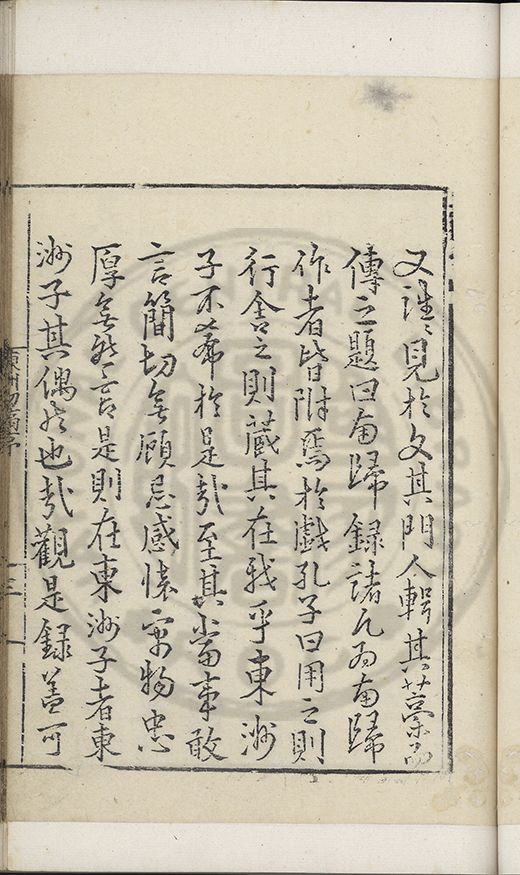 又謹〻見於文其門人輯其藁而
傳之題曰甫歸錄諸凡為甫歸
作者皆附焉於戲孔子曰用之則
行舍之則藏其在我乎東洲
子不希於是哉至其當事敢
言簡切無顧忌感懷寓物忠
厚無然言是則在東洲子者東
洲子其偶然也哉觀是錄蓋可
東洲初稿序
三